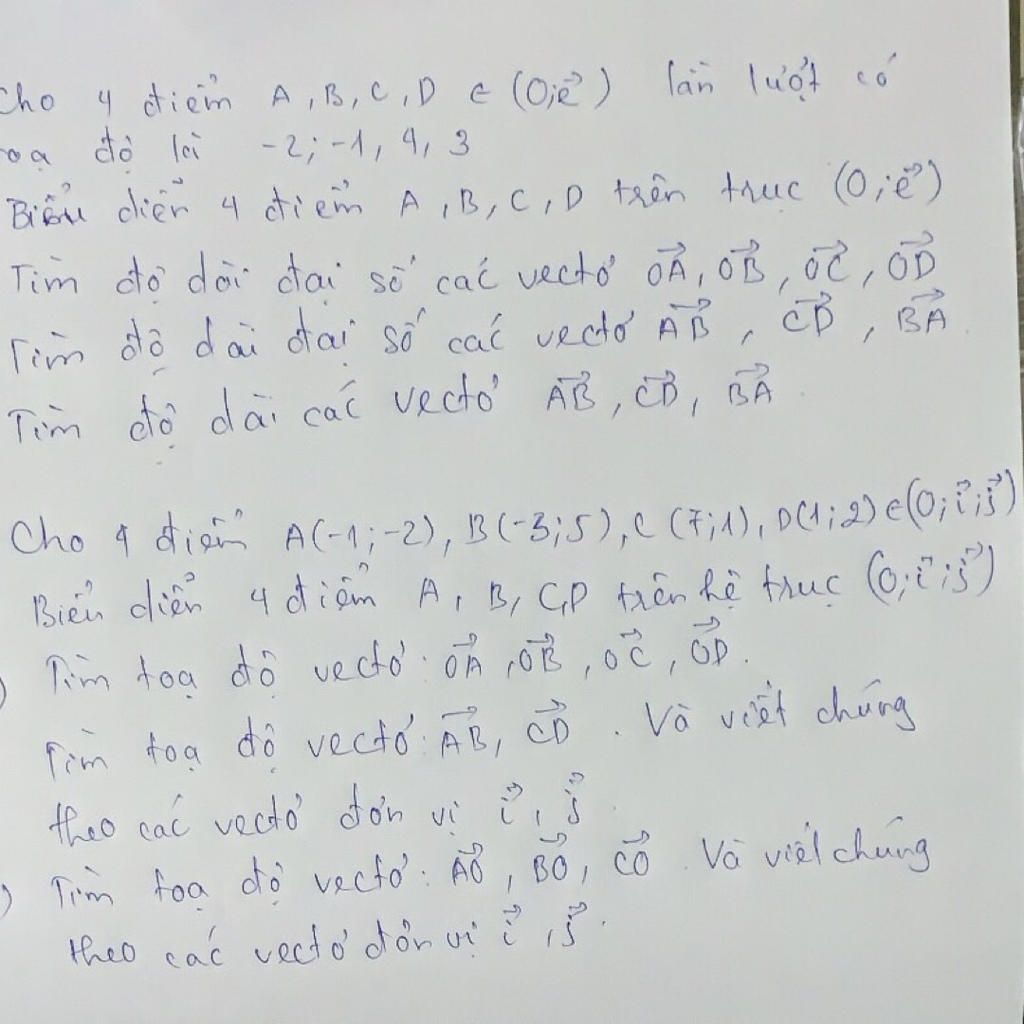 Cho 4 điểm A, B, C, D ∈ (O; e⃗) lần lượt có
toạ độ là -2; -1, 4, 3
Biểu diễn 4 điểm A, B, C, D trên trục (O; e⃗)
Tìm độ dài đại số các vectơ OA⃗, OB⃗, OC⃗, OD⃗
Tìm độ dài đại số các vectơ AB⃗, CD⃗, BA⃗.
Tìm độ dài các vectơ AB⃗, CD⃗, BA⃗.
Cho 4 điểm A(-1; -2), B(-3; 5), C(7; 1), D(1; 2) ∈ (O; i⃗; j⃗)
Biểu diễn 4 điểm A, B, C, D trên hệ trục (O; i⃗; j⃗)
) Tìm toạ độ vectơ: OA⃗, OB⃗, OC⃗, OD⃗.
Tìm toạ độ vectơ: AB⃗, CD⃗. Và viết chúng
theo các vectơ đơn vị i⃗, j⃗.
) Tìm toạ độ vectơ: AO⃗, BO⃗, CO⃗. Và viết chúng
theo các vectơ đơn vị i⃗, j⃗.